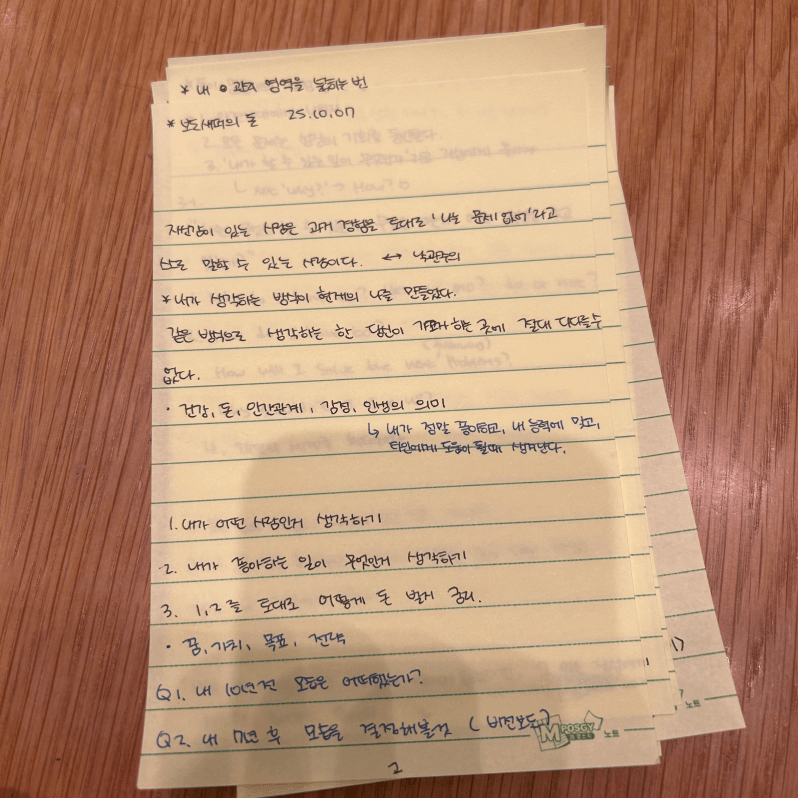 * 내 ㅇ관리 영역을 넓히는 법
* 보도섀퍼의 돈 25.10.07
자신감이 있는 사람은 과거 경험을 토대로 '나는 문제 없어'라고
스로 말할 수 있는 사람이다. ↔ 낙관주의
* 내가 생각하는 방식이 현재의 나를 만들었다.
같은 방식으로 생각하는 한 당신이 가고자 하는 곳에 절대 다다를 수
없다.
· 건강, 돈, 인간관계, 감정, 인생의 의미
↳ 내가 정말 좋아하고, 내 능력에 맞고,
타인에게 도움이 될때 생겨난다.
1. 내가 어떤 사람인지 생각하기
2. 내가 좋아하는 일이 무엇인지 생각하기
3. 1, 2를 토대로 어떻게 돈 벌지 궁리.
· 꿈, 가치, 목표, 전략
Q1. 내 10년 전 모습은 어떠했는가?
Q2. 내 7년 후 모습을 결정해볼것 (비전보드)
MPOSGY 노트
노트
2